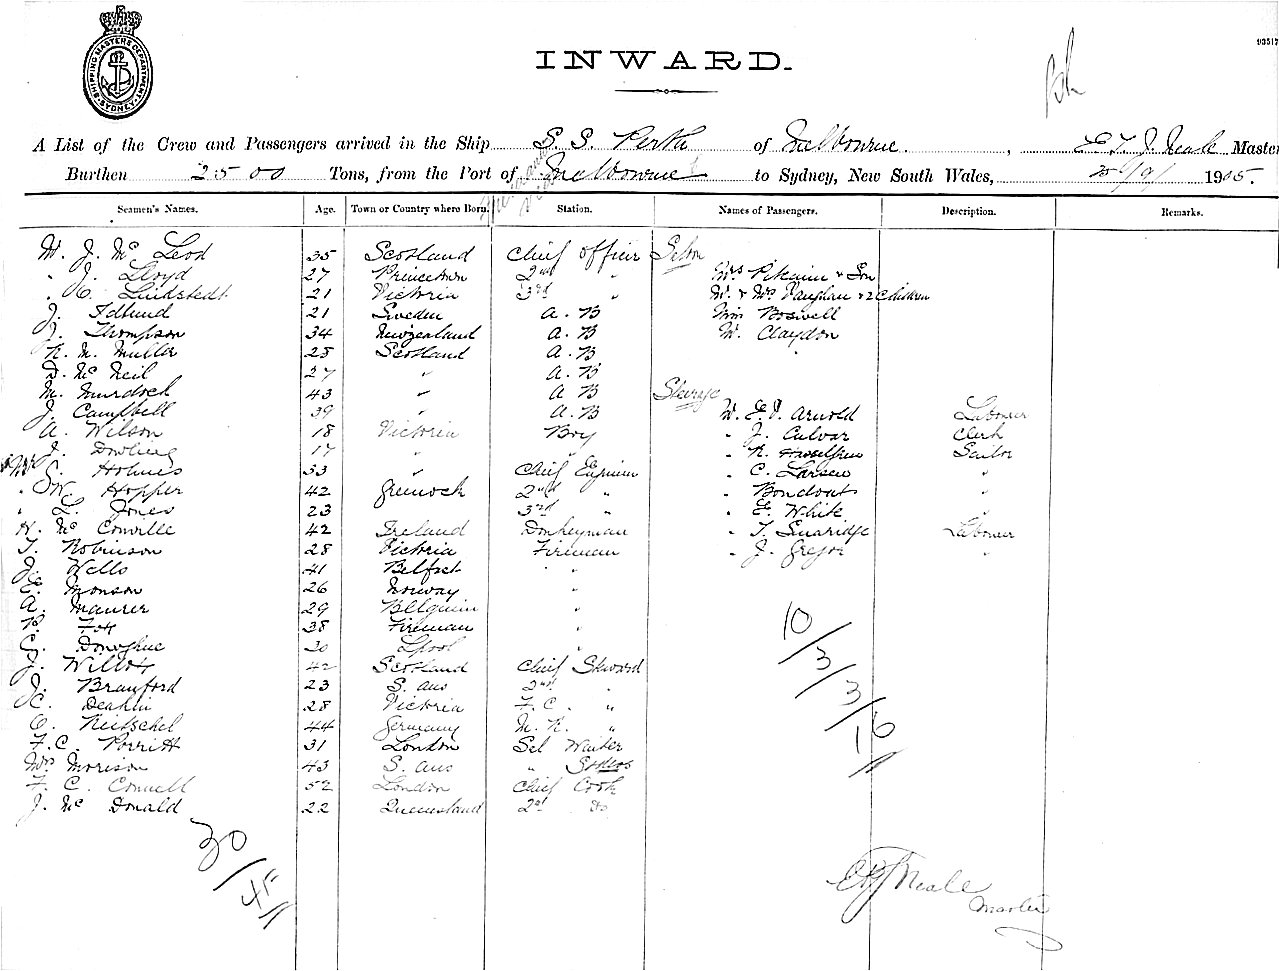 SHIPPING MASTERS DEPARTMENT SYDNEY
INWARD.
A List of the Crew and Passengers arrived in the Ship S. S. Perth of Melbourne, E T. J. Neale Master
Burthen 2500 Tons, from the Port of Melbourne to Sydney, New South Wales, 1905.
Seamen's Names. Age. Town or Country where Born. Station. Names of Passengers. Description. Remarks.
W. J. Mc Leod 35 Scotland Chief Officer Saloon
" J. Lloyd 27 Princetown 2nd " Mrs Pitcairn & Son
" C. Lindstedt 21 Victoria 3rd " Mr. & Mrs Vaughan & 2 Children
J. Edlund 21 Sweden A. B Miss Boswell
J. Thompson 34 Newzealand A. B Mr. Claydon
R. M. Muller 25 Scotland A. B
D. Mc Neil 27 " A. B
M. Murdoch 43 " A B Steerage
J. Campbell 39 " A. B Mr. E. J. Arnold Labourer
A. Wilson 18 Victoria Boy " J. Culvar Clerk
J. 17 " " " R. Sailor
C. Holmes 33 " Chief Engineer " C. Larsen "
" W. Hopper 42 Greenock 2nd " " "
" L. Jones 23 " 3rd " " E. White "
H. Mc Conville 42 Ireland Donkeyman " T. Labourer
T. Robinson 28 Victoria Fireman " J. Gregor "
J. Wells 41 Belfast " "
E. Monson 26 Norway "
A. Maurer 29 Belguim "
P. Fox 38 Fireman "
C. Donoghue 30 Lpool "
J. 42 Scotland Chief Steward
J. Branford 23 S. Aus 2nd "
C. Deakin 28 Victoria F. C. "
O. Neitschel 44 Germany M. R. "
F. C. Porritt 31 London Sal Waiter
Mrs Morrison 43 S. Aus " Stdess
F. C. Connell 52 London Chief Cook
J. Mc Donald 22 Queensland 2nd Do
10/3/3/16/1
30/5/1
Neale
Master